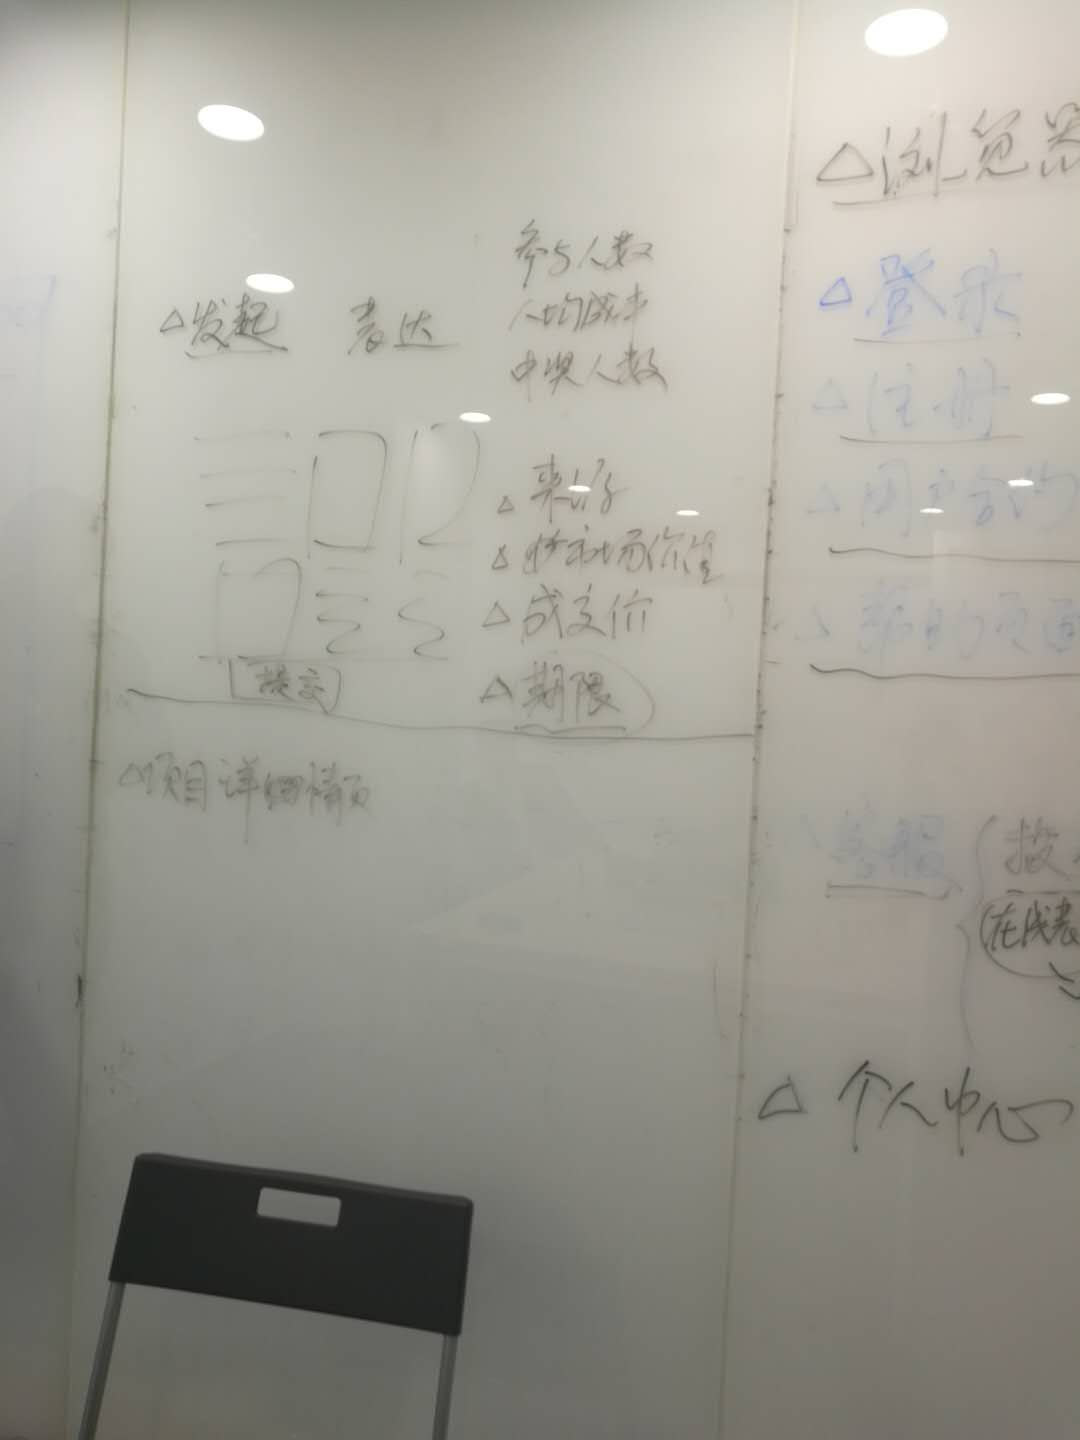 △发起 表达
参与人数
人均成本
中奖人数
△
△ 市场价值
△成交价
△期限
提交
△项目详细情页
△浏览器
△登录
△注册
△用户合约
△ 的页面
客服
在线表
△个人中心